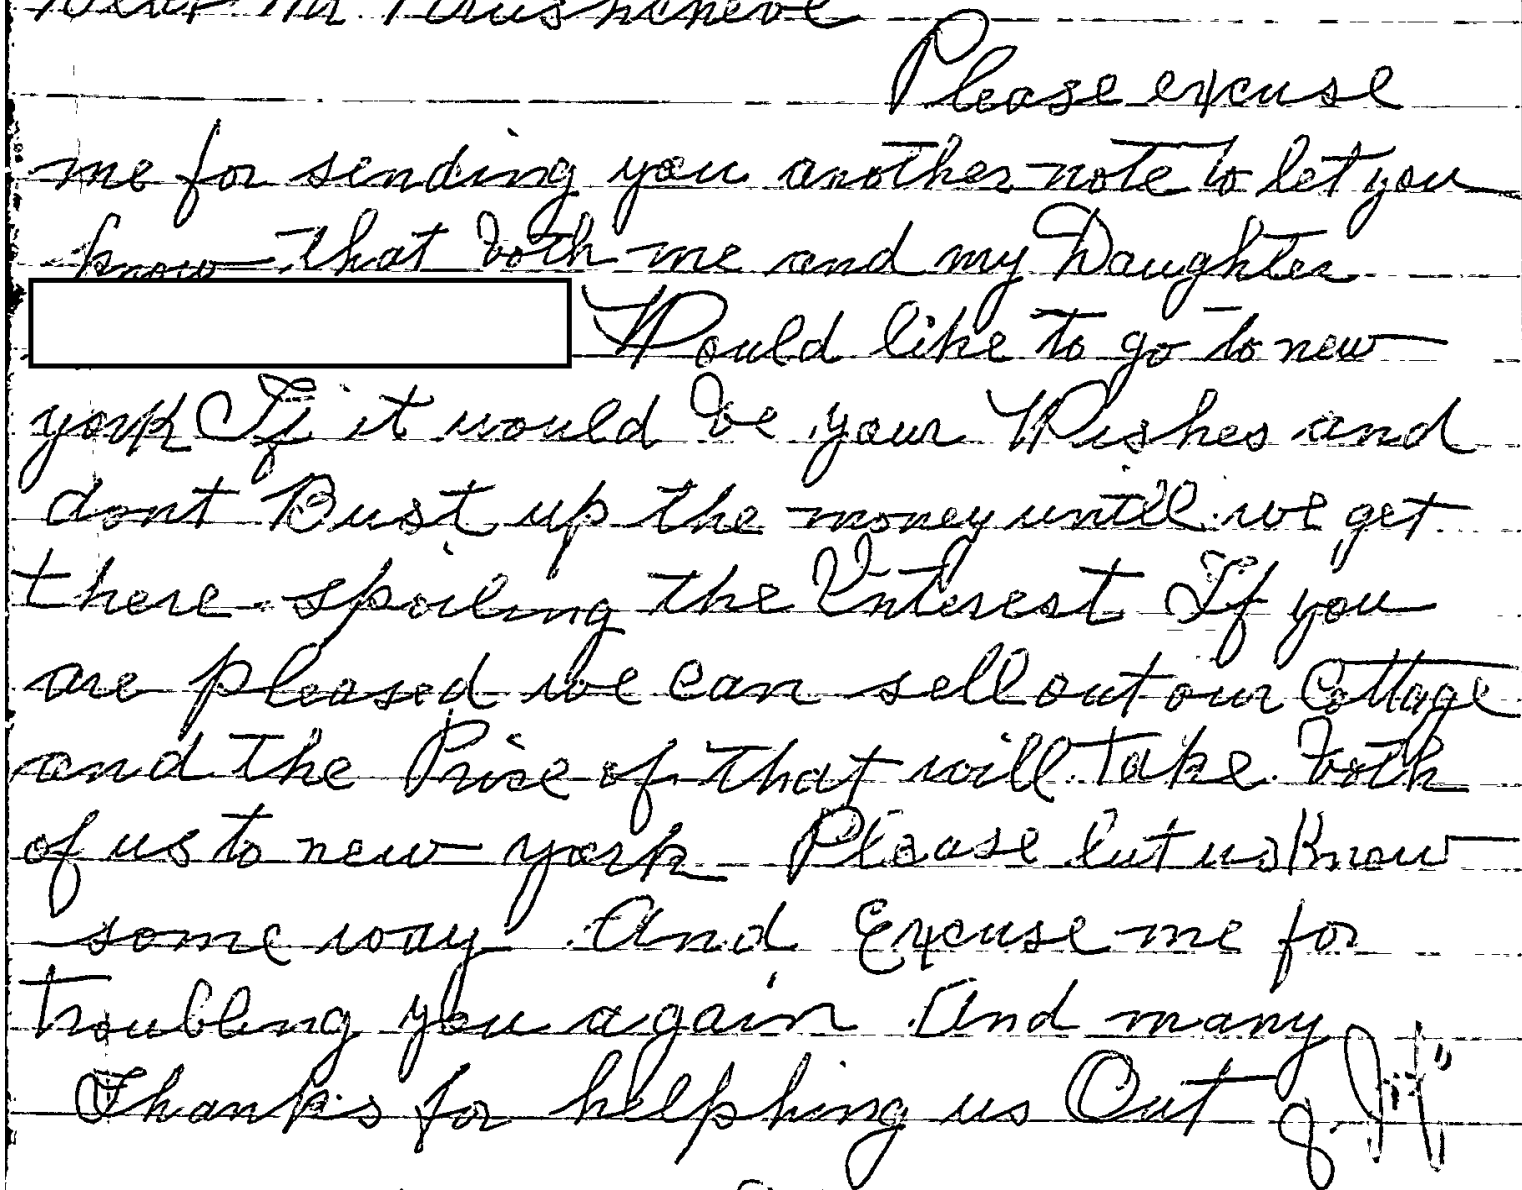 Dear Mr Krushcheve
Please excuse
me for sending you another note to let you
know that both me and my Daughter
Would like to go to new
york If it would be your Wishes and
dont Bust up the money untill we get
there spoiling the Interest If you
are pleased we can sell out our Cottage
and the Prise of that will take both
of us to new york Please let us Know
some way And Excuse me for
troubling you again And many
Thanks for helphing us Out